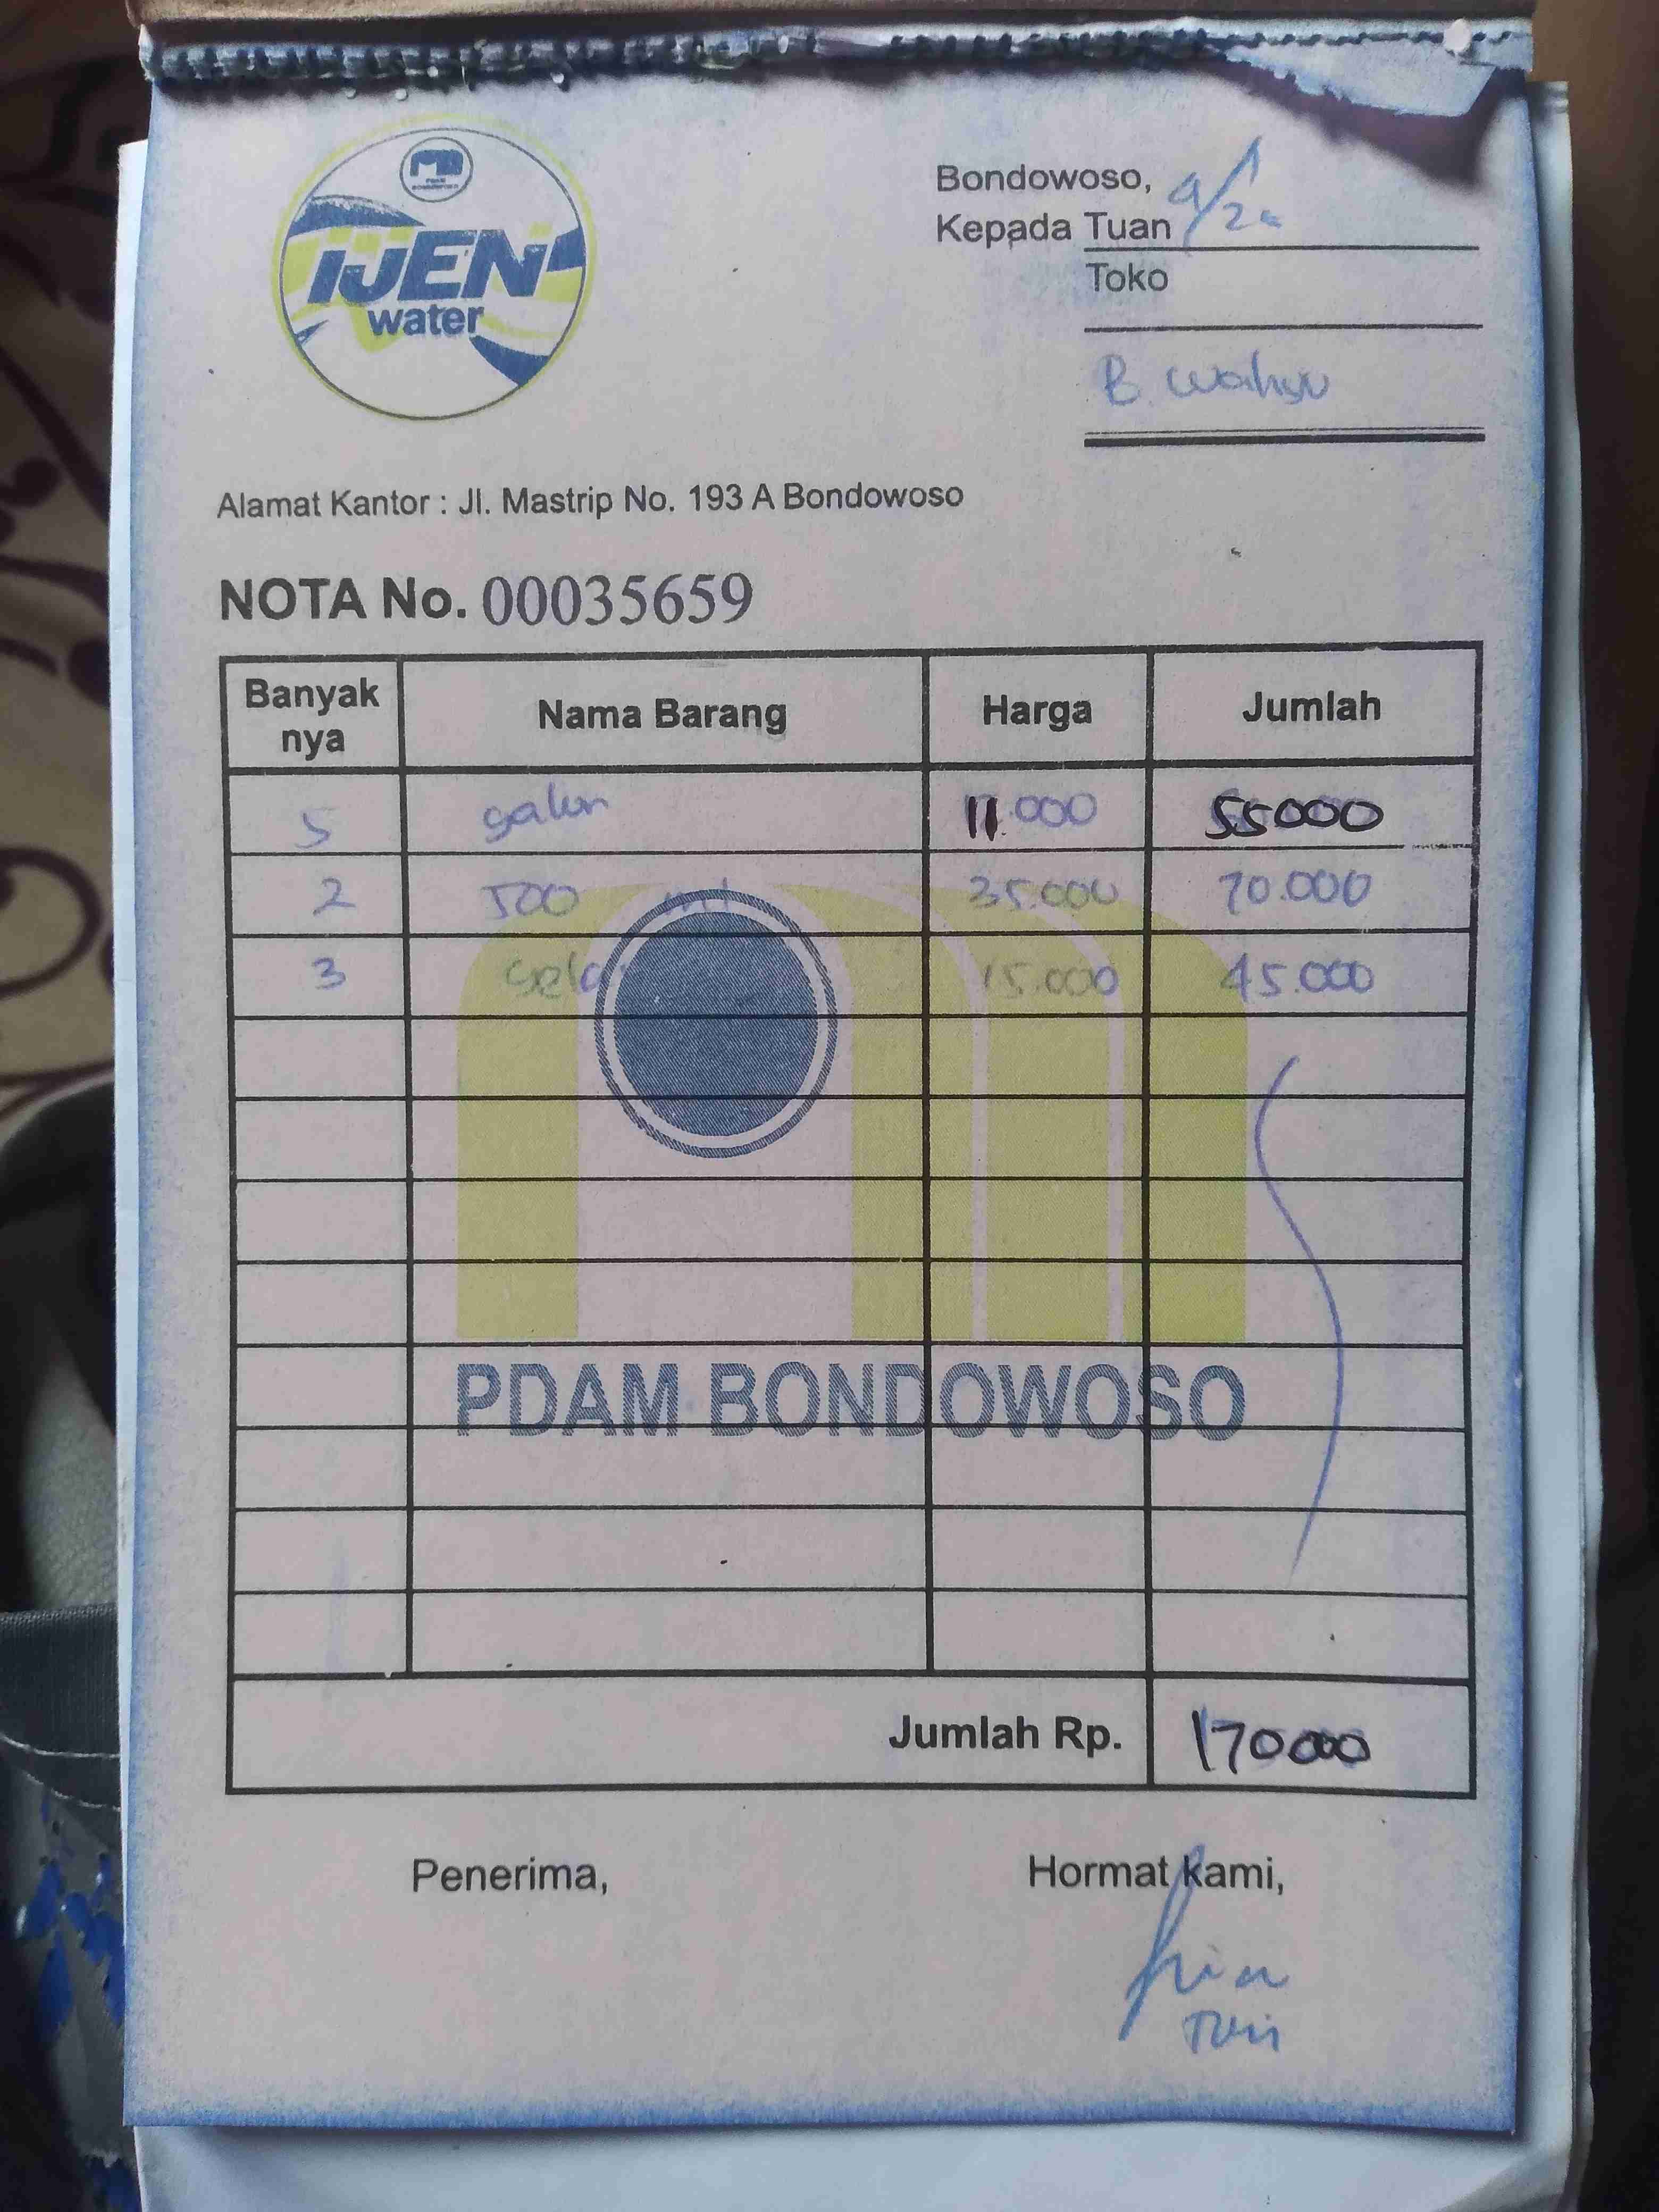 IJEN
water
Bondowoso,
Kepada Tuan
Toko
B. Wahyu
Alamat Kantor : Jl. Mastrip No. 193 A Bondowoso
NOTA No. 00035659
Banyak nya Nama Barang Harga Jumlah
5 galon 11.000 55000
2 500 ml 35.000 70.000
3 15.000 45.000
PDAM BONDOWOSO
Jumlah Rp. 170000
Penerima, Hormat kami,